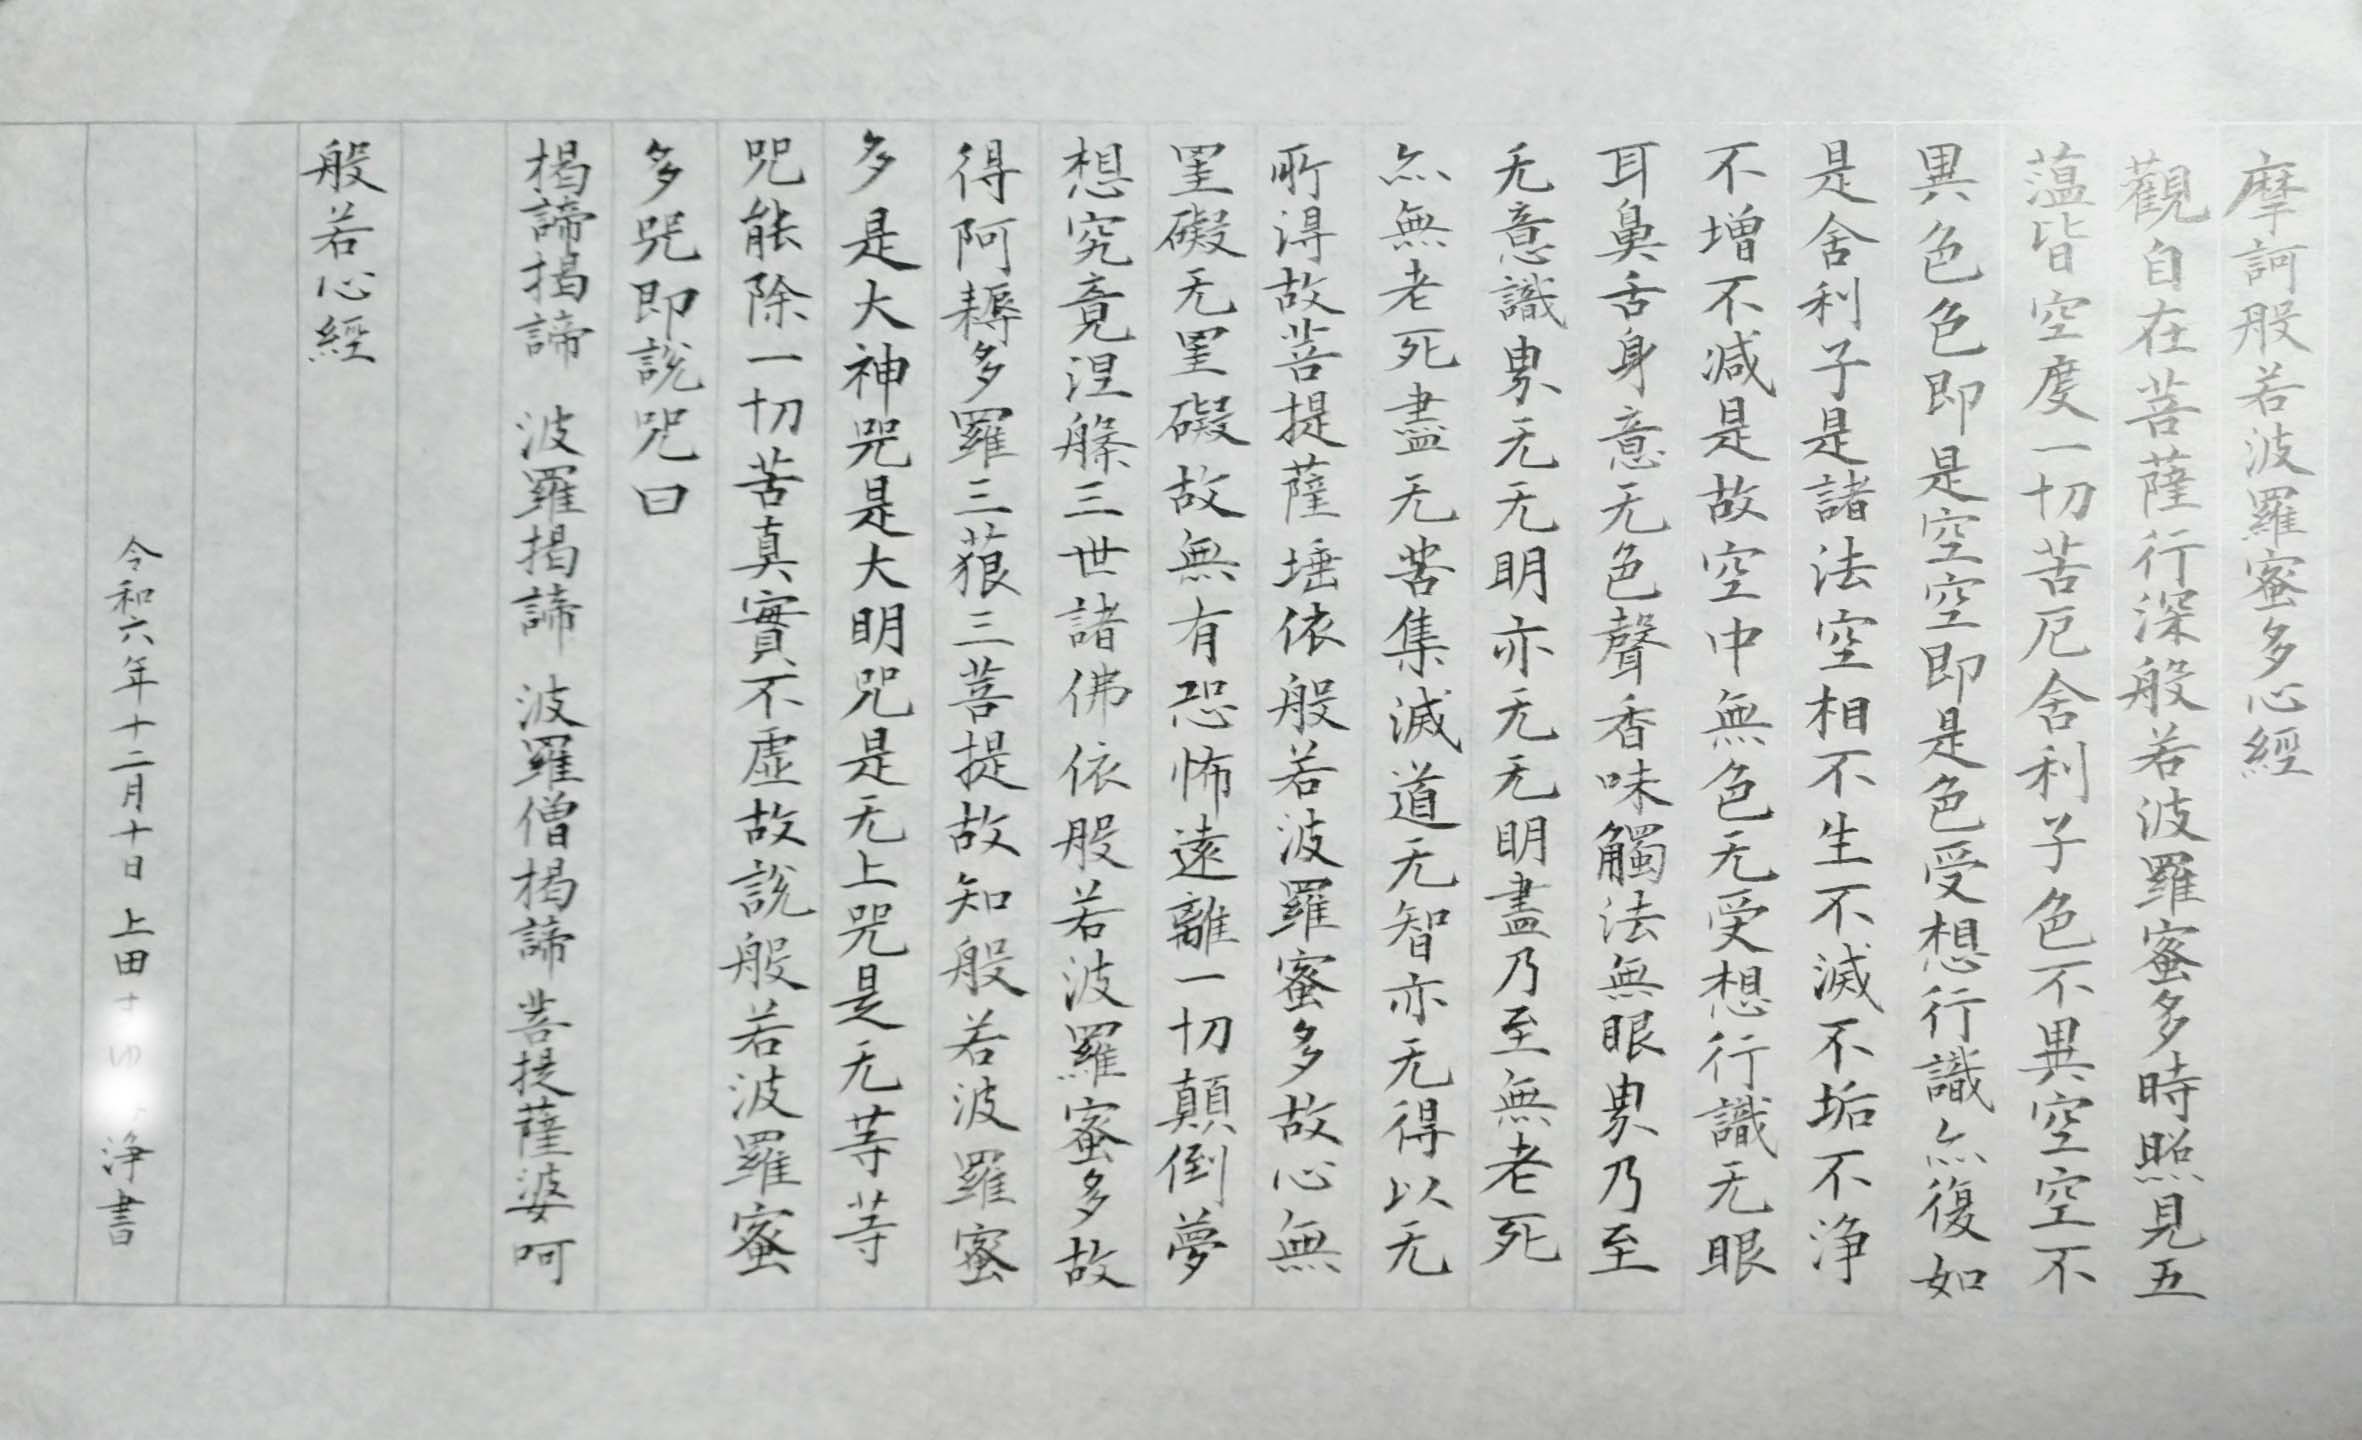 摩訶般若波羅蜜多心經
觀自在菩薩行深般若波羅蜜多時照見五
薀皆空度一切苦厄舍利子色不異空空不
異色色即是空空即是色受想行識亦復如
是舍利子是諸法空相不生不滅不垢不浄
不增不减是故空中無色无受想行識无眼
耳鼻舌身意无色聲香味觸法無眼界乃至
无意識界无无明亦无无明盡乃至無老死
亦無老死盡无苦集滅道无智亦无得以无
所得故菩提薩埵依般若波羅蜜多故心無
罣礙无罣礙故無有恐怖遠離一切顛倒夢
想究竟涅槃三世諸佛依般若波羅蜜多故
得阿耨多羅三藐三菩提故知般若波羅蜜
多是大神咒是大明咒是无上咒是无等等
咒能除一切苦真實不虚故説般若波羅蜜
多咒即説咒曰
揭諦揭諦 波羅揭諦 波羅僧揭諦 菩提薩婆呵
般若心經
令和六年十二月十日 上田 浄書